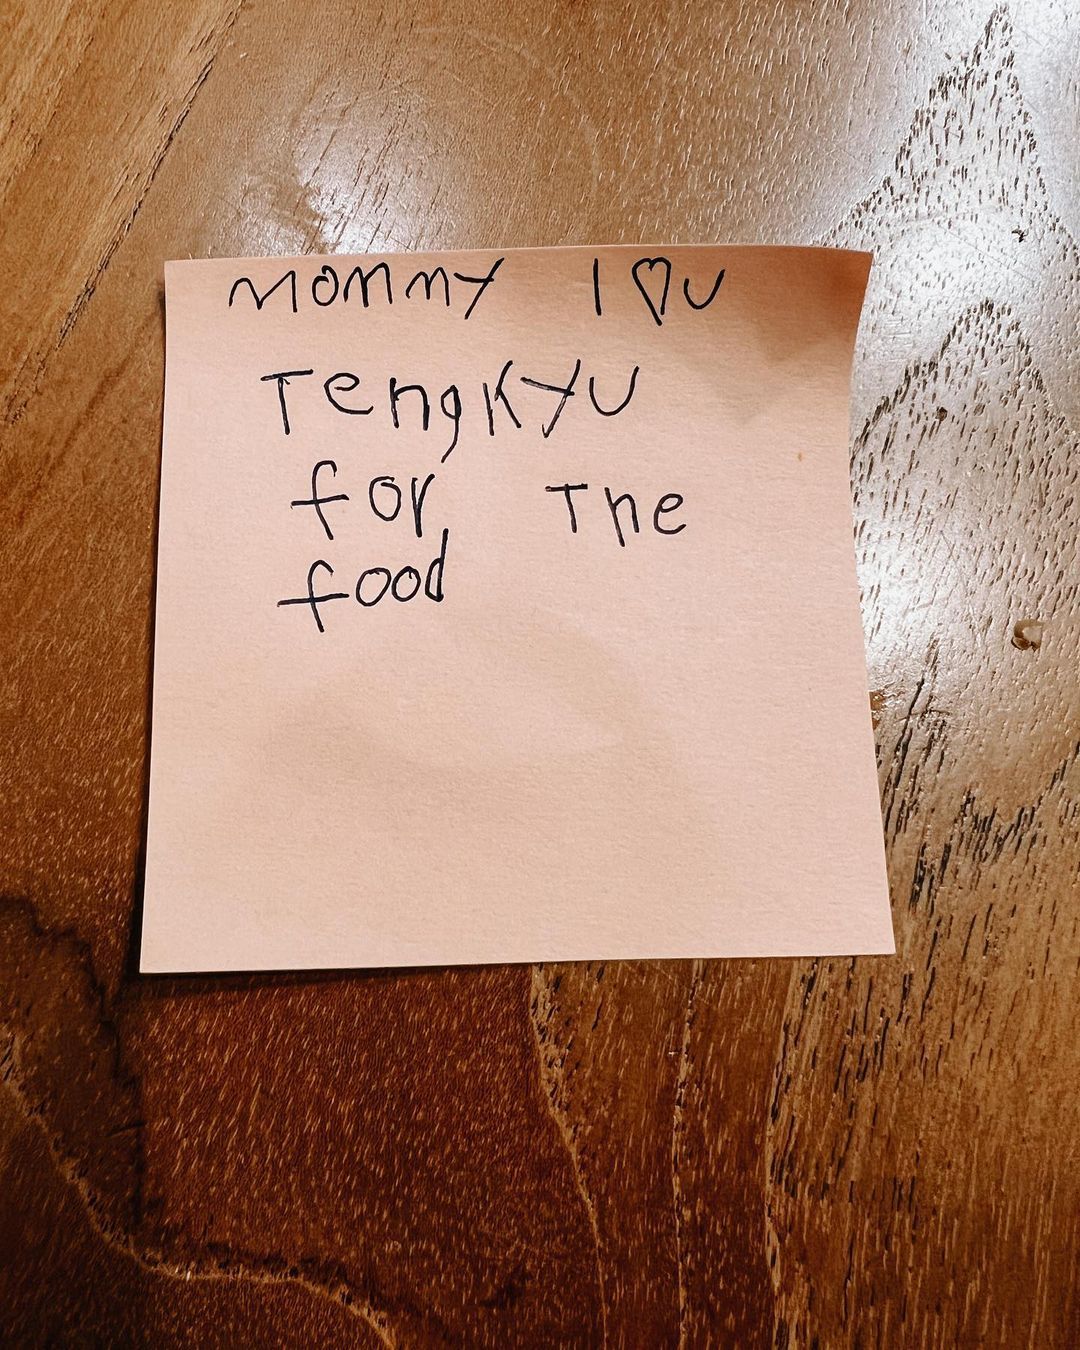 mommy I ♡ U
TengKyU
for The
food